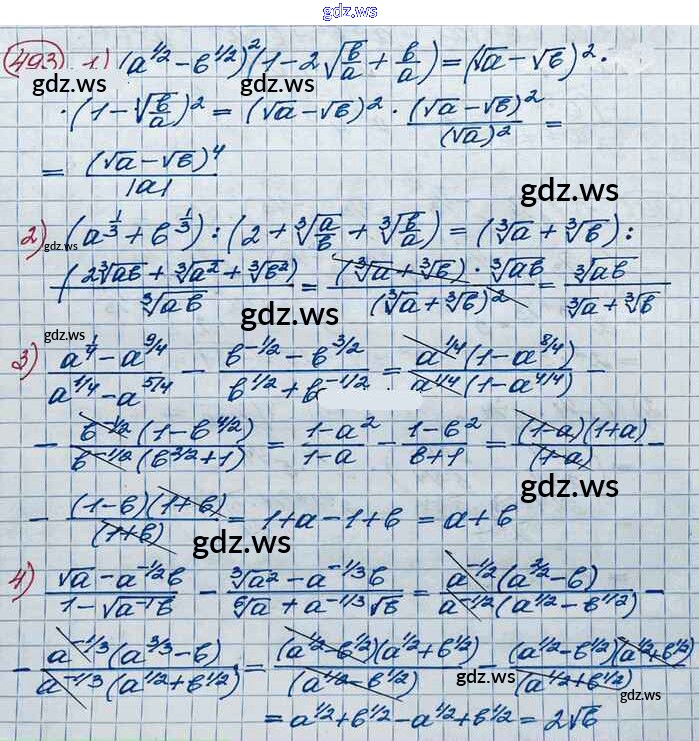 gdz.ws
493 1) (a^{1/2} - b^{1/2})^2 (1 - 2√(b/a) + b/a) = (√a - √b)^2 ·
gdz.ws gdz.ws
· (1 - √(b/a))^2 = (√a - √b)^2 · (√a - √b)^2/(√a)^2 =
= (√a - √b)^4/|a|
gdz.ws
2) (a^{1/3} + b^{1/3}) : (2 + ∛(a/b) + ∛(b/a)) = (∛a + ∛b) :
gdz.ws
(2∛ab + ∛a^2 + ∛b^2)/∛ab = (∛a + ∛b) · ∛ab/(∛a + ∛b)^2 = ∛ab/(∛a + ∛b)
gdz.ws gdz.ws
3) (a^{1/4} - a^{9/4})/(a^{1/4} - a^{5/4}) - (b^{-1/2} - b^{3/2})/(b^{1/2} + b^{-1/2}) = a^{1/4}(1 - a^{8/4})/a^{1/4}(1 - a^{4/4}) -
- b^{-1/2}(1 - b^{4/2})/b^{-1/2}(b^{2/2} + 1) = (1 - a^2)/(1 - a) - (1 - b^2)/(b + 1) = (1-a)(1+a)/(1-a) -
gdz.ws gdz.ws
- (1-b)(1+b)/(1+b) = 1 + a - 1 + b = a + b
gdz.ws gdz.ws
4) (√a - a^{-1/2}b)/(1 - √(a^{-1}b)) - (∛a^2 - a^{-1/3}b)/(⁶√a + a^{-1/3}√b) = a^{-1/2}(a^{2/2} - b)/a^{-1/2}(a^{1/2} - b^{1/2}) -
- a^{-1/3}(a^{3/3} - b)/a^{-1/3}(a^{1/2} + b^{1/2}) = (a^{1/2} - b^{1/2})(a^{1/2} + b^{1/2})/(a^{1/2} - b^{1/2}) - (a^{1/2} - b^{1/2})(a^{1/2} + b^{1/2})/(a^{1/2} + b^{1/2})
gdz.ws gdz.ws
= a^{1/2} + b^{1/2} - a^{1/2} + b^{1/2} = 2√b
gdz.ws